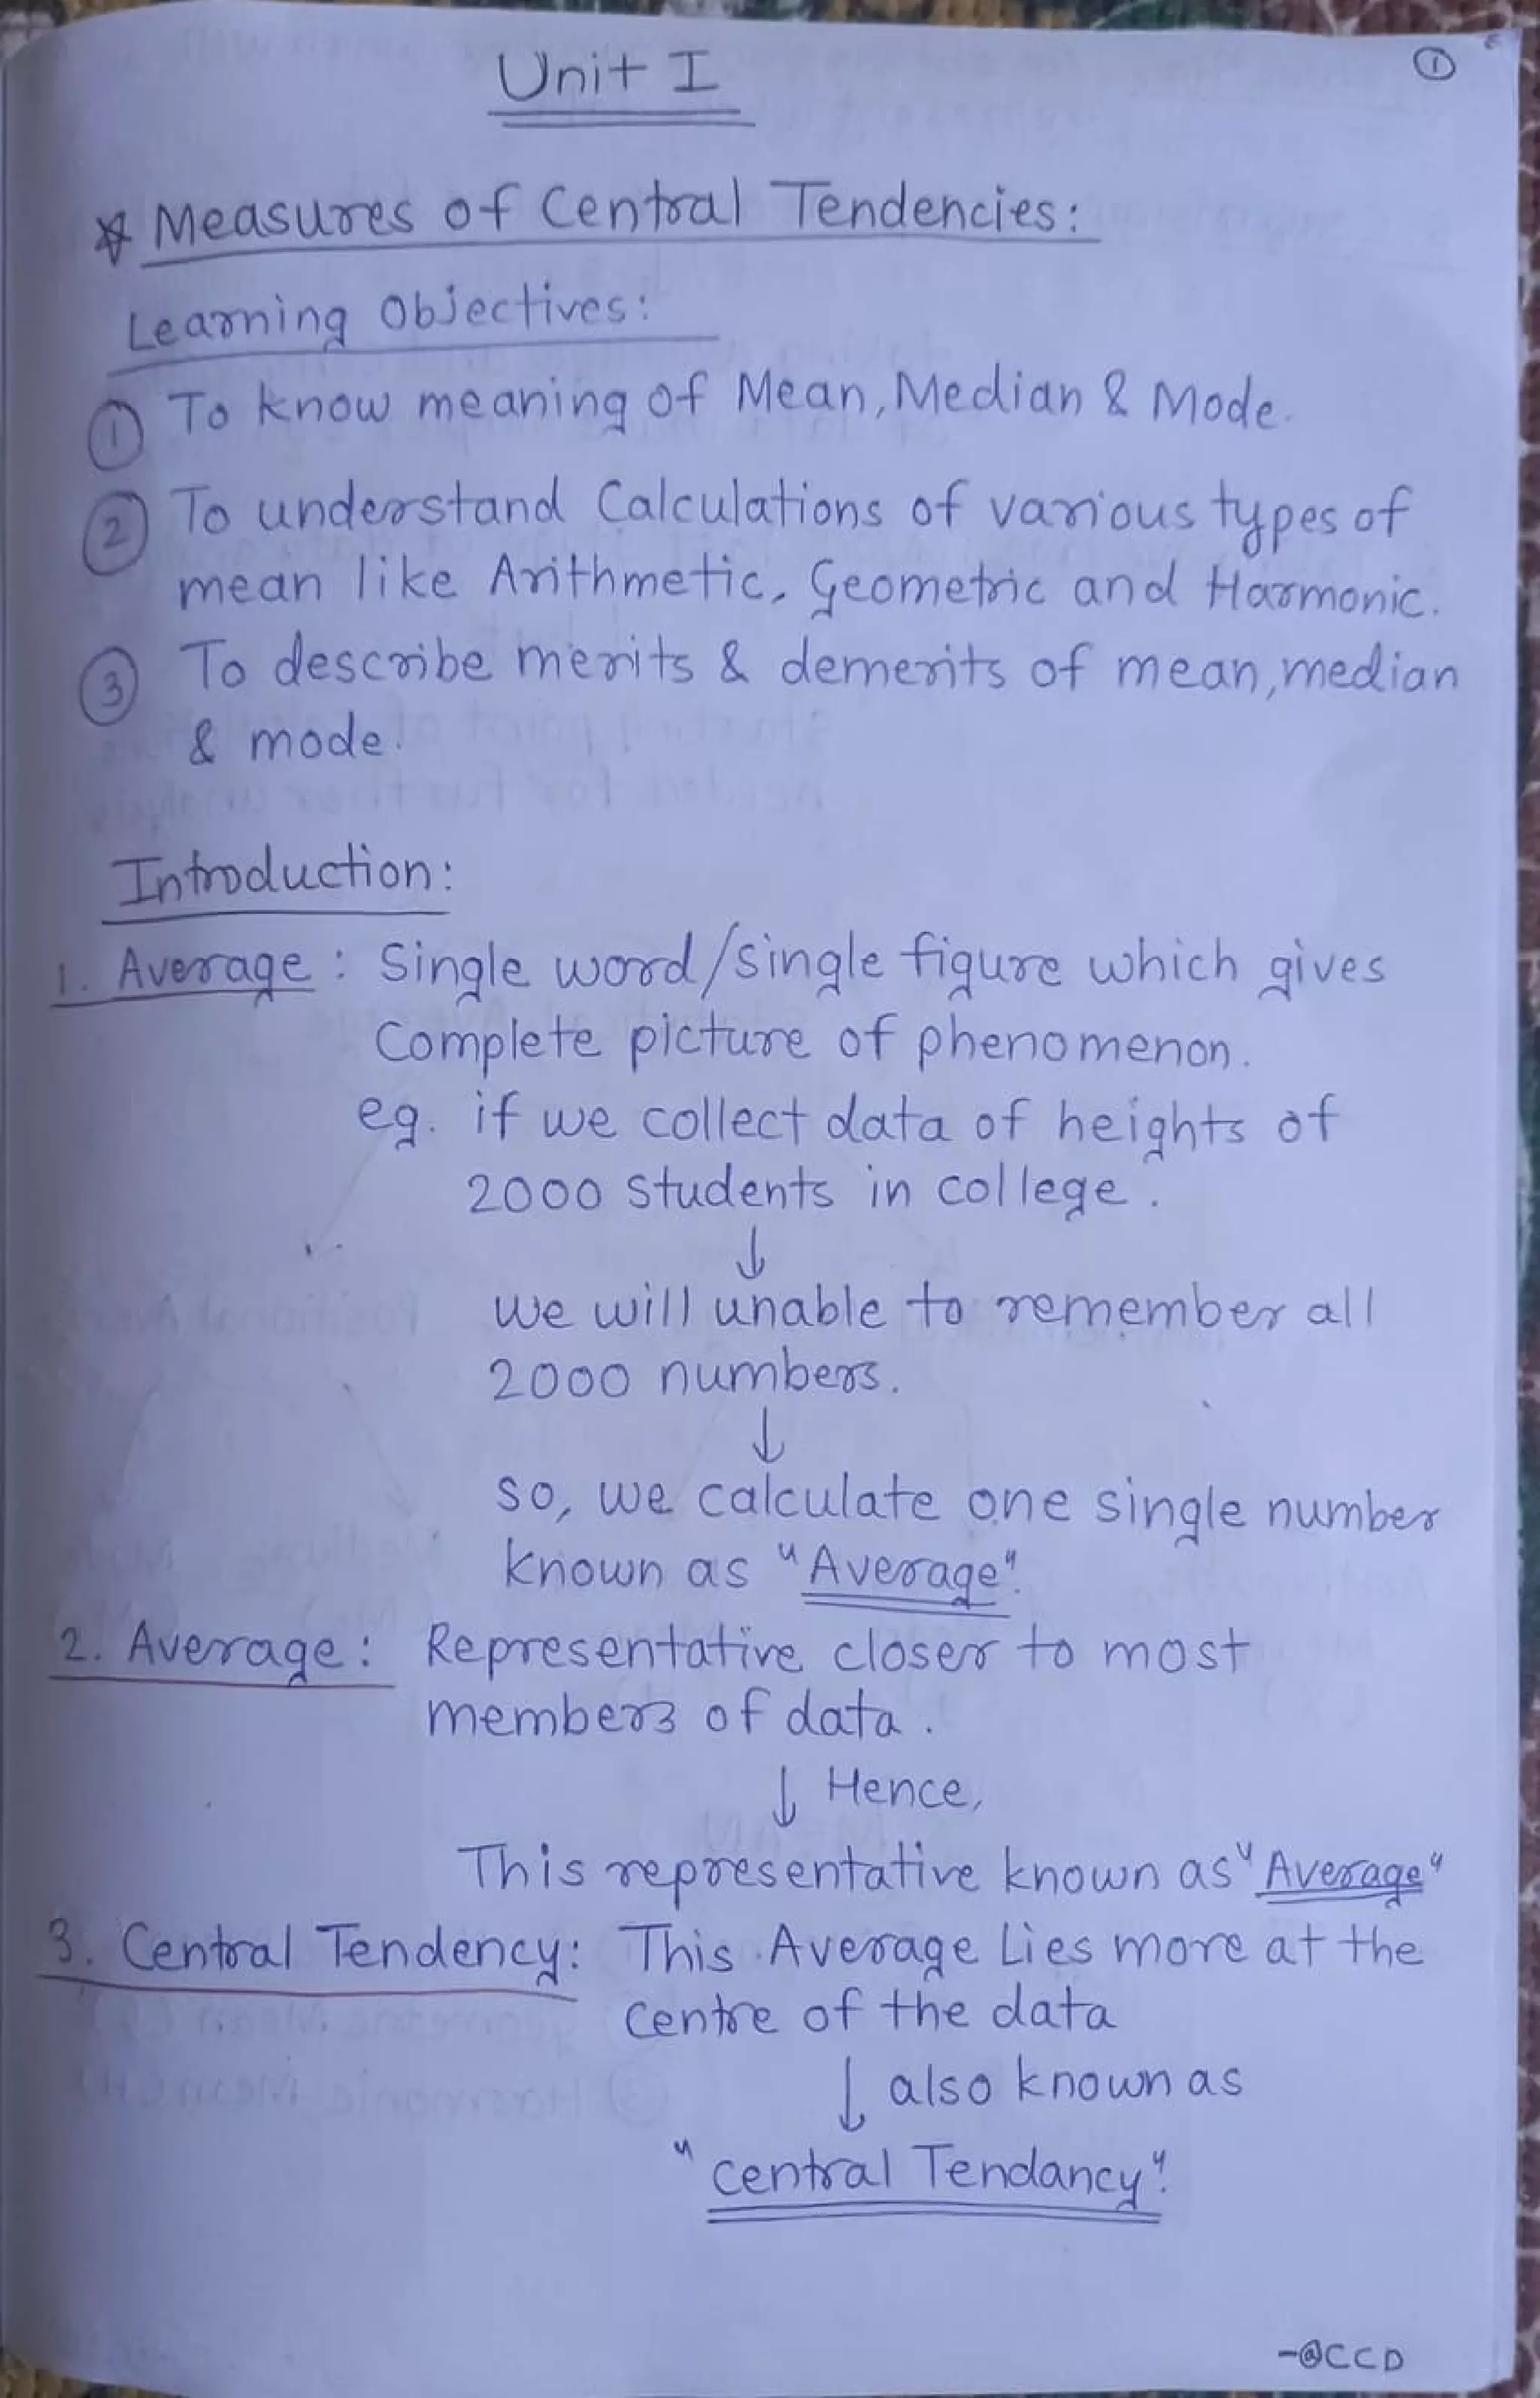 Unit I
①
* Measures of Central Tendencies:
Learning Objectives:
① To know meaning of Mean, Median & Mode.
② To understand Calculations of various types of
mean like Arithmetic, Geometric and Harmonic.
③ To describe merits & demerits of mean, median
& mode.
Introduction:
1. Average: Single word/single figure which gives
Complete picture of phenomenon.
eg. if we collect data of heights of
2000 students in college.
↓
we will unable to remember all
2000 numbers.
↓
so, we calculate one single number
known as "Average".
2. Average: Representative closer to most
members of data.
↓ Hence,
This representative known as "Average"
3. Central Tendency: This Average Lies more at the
centre of the data
↓ also known as
"central Tendancy".
-@CCD